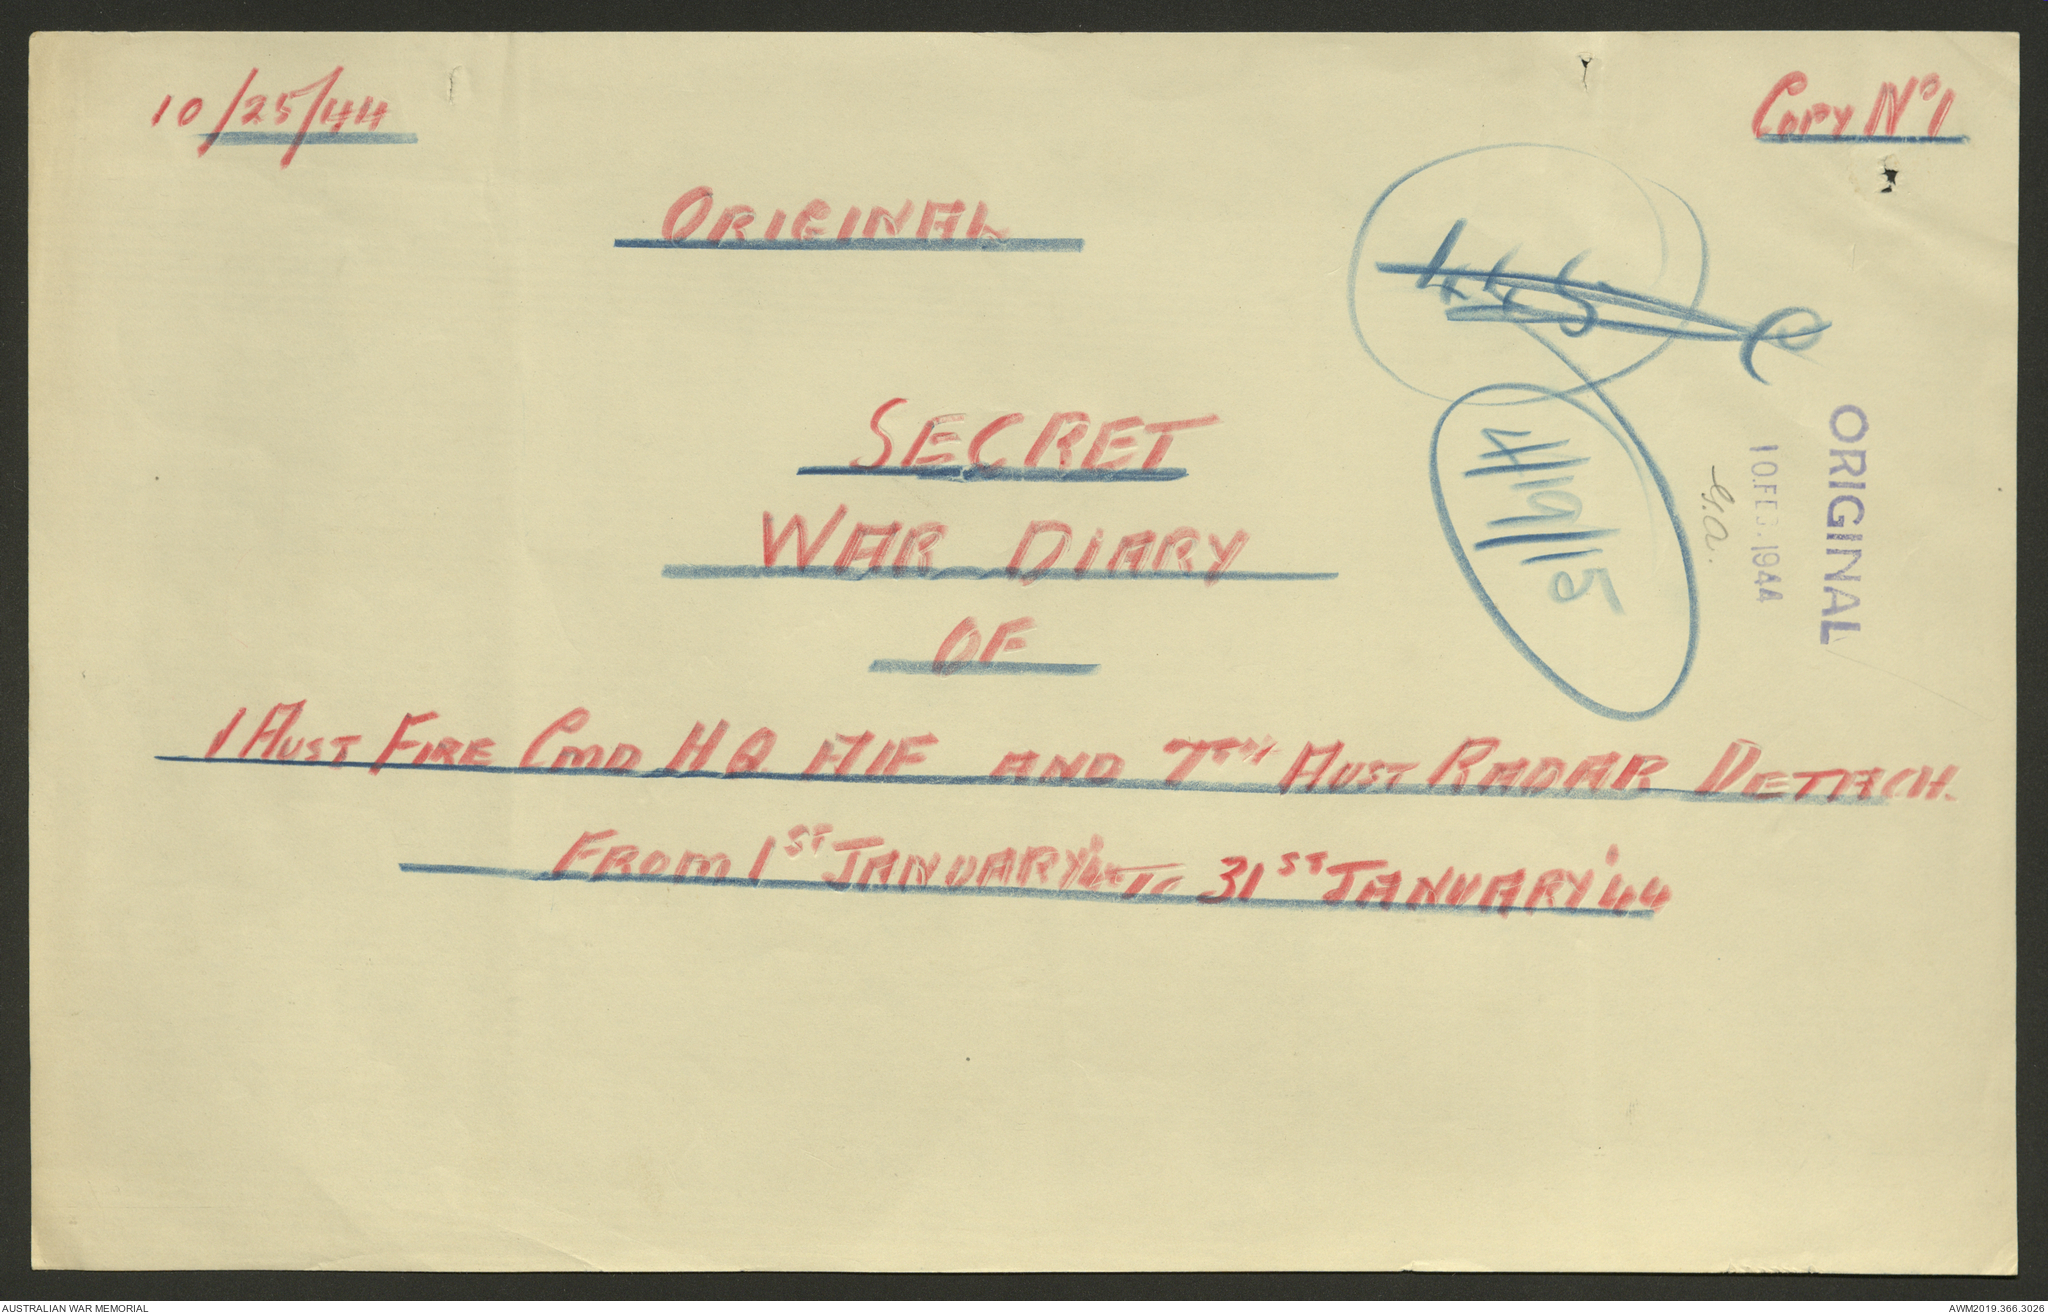 10/25/44
Copy No 1
ORIGINAL
SECRET
WAR DIARY
OF
1 AUST FIRE CMD HQ AIF AND 7TH AUST RADAR DETACH.
FROM 1ST JANUARY '44 TO 31ST JANUARY '44
4/19/15
ORIGINAL
10 FEB 1944
G.A.
AUSTRALIAN WAR MEMORIAL
AWM2019.366.3026